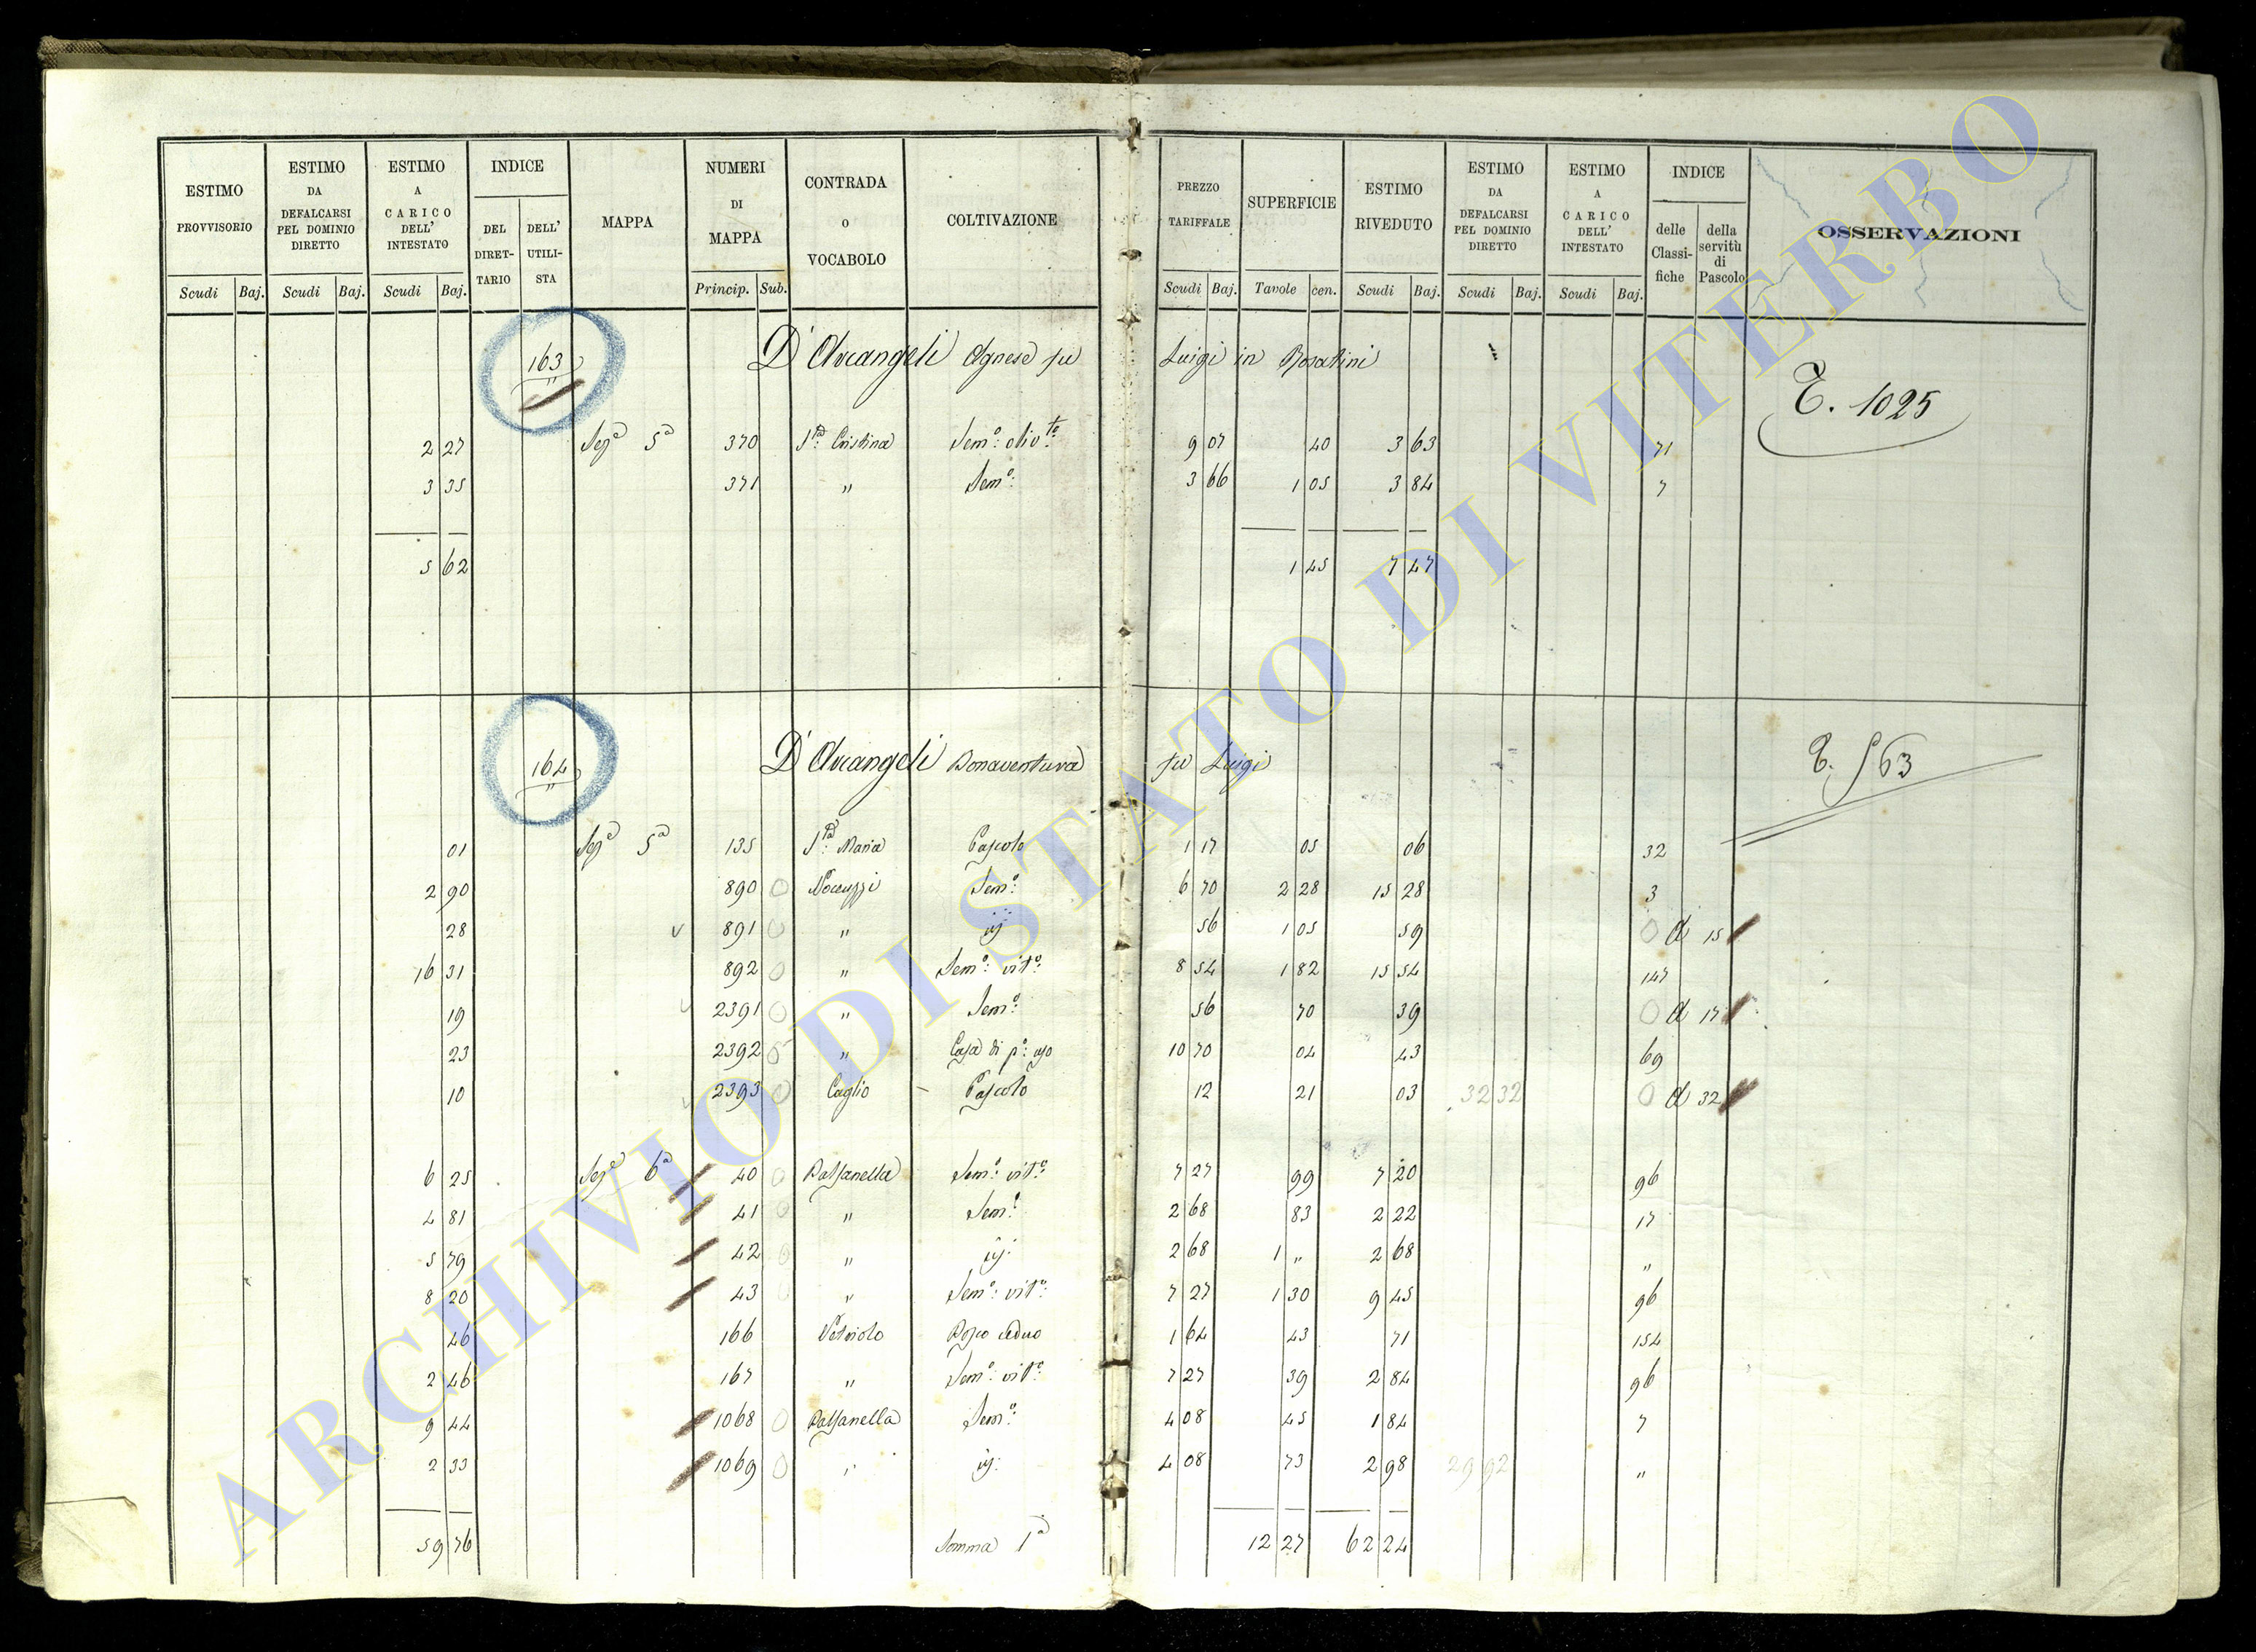 ESTIMO PROVVISORIO
ESTIMO DA DEFALCARSI PEL DOMINIO DIRETTO
ESTIMO A CARICO DELL' INTESTATO
INDICE
DEL DIRET-TARIO
DELL' UTILI-STA
MAPPA
NUMERI DI MAPPA
CONTRADA o VOCABOLO
COLTIVAZIONE
PREZZO TARIFFALE
SUPERFICIE
ESTIMO RIVEDUTO
ESTIMO DA DEFALCARSI PEL DOMINIO DIRETTO
ESTIMO A CARICO DELL' INTESTATO
INDICE
delle Classi-fiche
della servitù di Pascolo
OSSERVAZIONI
Scudi Baj. Scudi Baj. Scudi Baj. Princip. Sub. Scudi Baj. Tavole cen. Scudi Baj. Scudi Baj. Scudi Baj.
163 D'Arcangeli Agnese fu Luigi in Rosatini
T. 1025
2 27 Sezᵉ 5ᵃ 370 Sᵗᵃ: Cristina Semᵒ: olivᵗᵒ 9 07 40 3 63 71
3 35 371 " Semᵒ: 3 66 1 05 3 84 7
5 62 1 45 7 47
164 D'Arcangeli Bonaventura fu Luigi
T. 563
01 Sezᵉ 5ᵃ 135 Sᵗᵃ: Maria Pascolo 1 17 05 06 32
2 90 890 0 Nocuzzi Semᵒ: 6 70 2 28 15 28 3
28 v 891 0 " iij 56 1 05 59 0 d 15
16 31 892 0 " Semᵒ: vitᵒ: 8 54 1 82 15 54 147
19 v 2391 0 " Semᵒ: 56 70 39 0 d 17
23 2392 0 " Casa di pᵒ: uso 10 70 04 43 69
10 v 2393 0 Caglio Pascolo 12 21 03 32 32 0 d 32
6 25 Sezᵉ 6ᵃ 40 0 Balsanella Semᵒ: vitᵒ: 7 27 99 7 20 96
4 81 41 0 " Semᵒ: 2 68 83 2 22 17
5 79 42 0 " iij: 2 68 1 " 2 68 "
8 20 43 0 " Semᵒ: vitᵒ: 7 27 1 30 9 45 96
46 166 Vetriolo Bosco ceduo 1 64 43 71 154
2 46 167 " Semᵒ: vitᵒ: 7 27 39 2 84 96
9 44 1068 0 Balsanella Semᵒ: 4 08 45 1 84 7
2 33 1069 0 " iij: 4 08 73 2 98 29 92 "
59 76 Somma 1ᵃ 12 27 62 24
ARCHIVIO DI STATO DI VITERBO